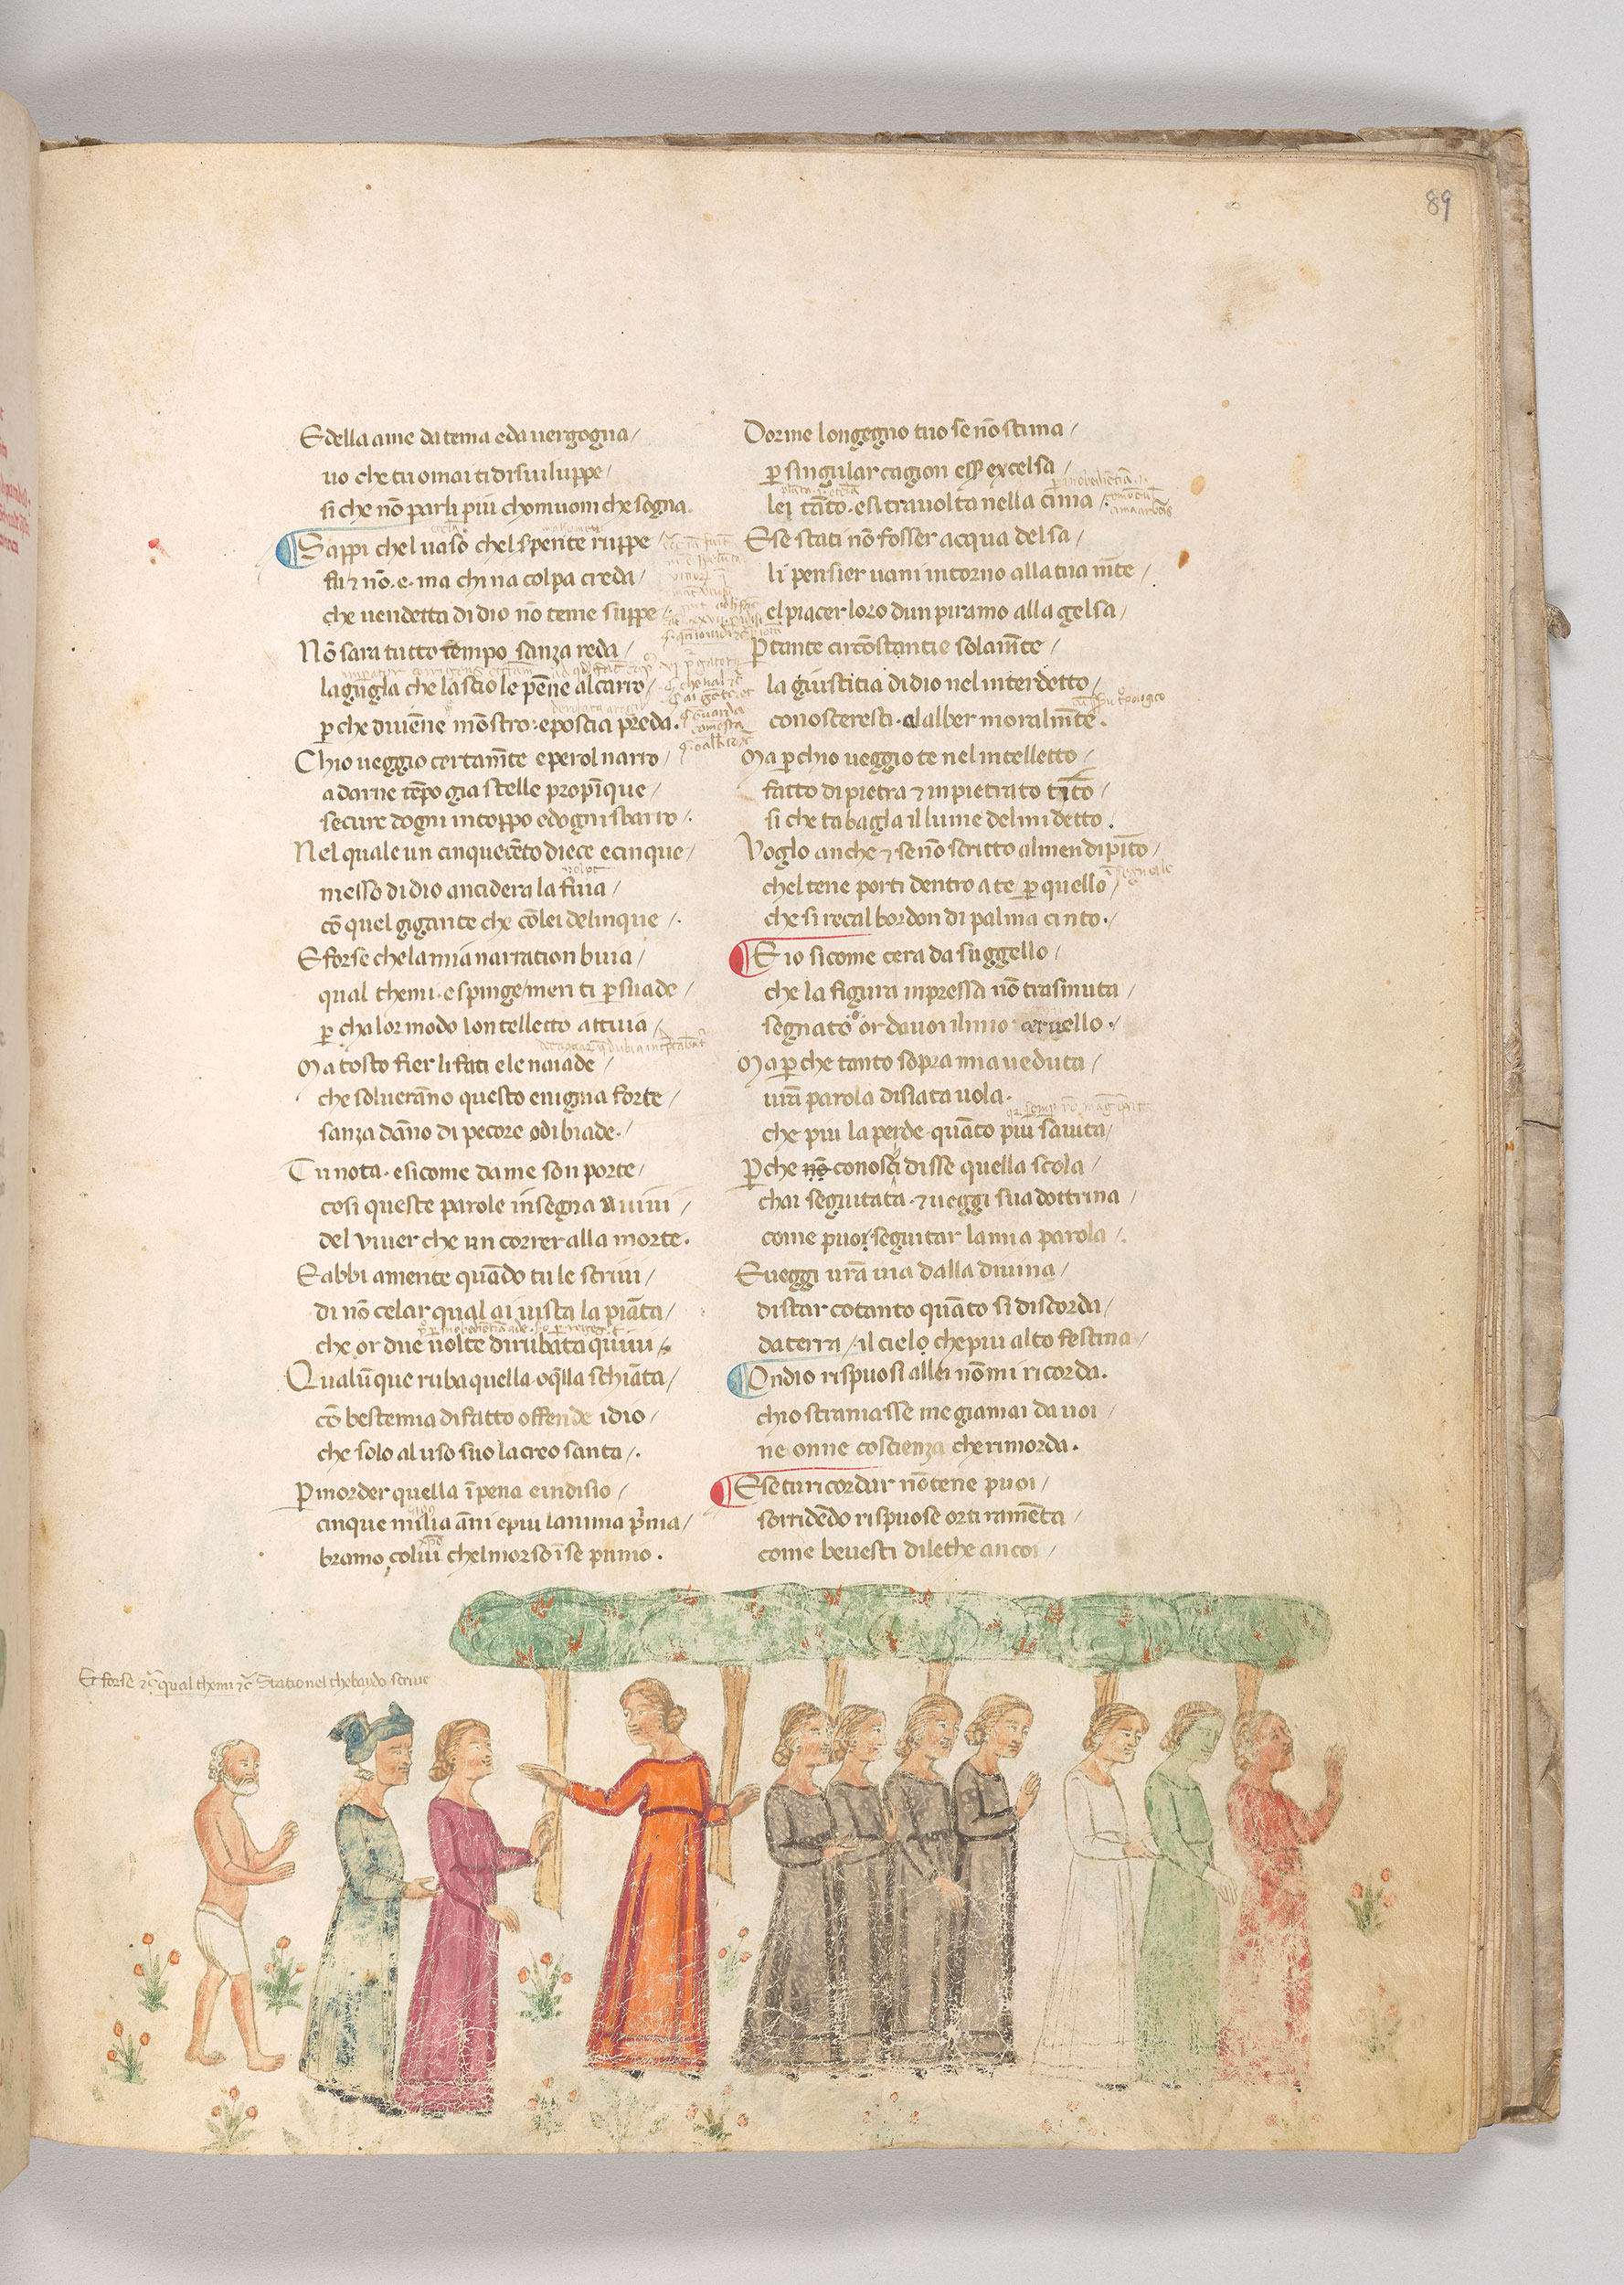 89
Edella a me da tema eda uergogna /
uo che tu omai ti disuiluppe /
si che nō parli piu chomuom che sogna.
Sappi chel uaso chel spente ruppe /
fu ⁊ nō.e. ma chi na colpa creda /
che uendetta di dio nō teme suppe /
Nō sara tutto tempo sanza reda /
lagugla che lascio le pēne al carro /
p̱ che diuēne mōstro: e poscia preda.
Chio ueggio certamēte e pero l narro /
a darne tēpo gia stelle propīque /
secure dogni intoppo edogni sbarro /.
Nel quale un cinquecēto diece e cinque /
messo di dio ancidera la fuia /
cō quel gigante che cō lei delinque /.
E forse che la mia narration buia /
qual themi.e spinge men ti p̱suade /
p̱ cha lor modo lontelletto attuia /
Ma tosto fier li fati e le naiade /
che solueranno questo enigma forte /
sanza dāno di pecore o di biade./
Tu nota.e si come da me son porte /
cosi queste parole īsegna a uiui /
del viuer che un correr alla morte.
E abbi a mente quādo tu le scriui /
di nō celar qual ai uista la piāta /
che or due uolte dirubata quiui /
Qualūque ruba quella.o q̄lla schiāta /
cō bestemia di fatto offende idio /
che solo al uso suo la creo santa /.
P̱ morder quella ī pena e in disio /
cinque milia āni e piu lanima p̄ma /
bramo colui chel morso ī se punio.
Dorme longegno tuo se nō stima /
p̱ singular cagion ess̄ excelsa /
lei tāto.e si trauolta nella cima /
E se stati nō fosser acqua delsa /
li pensier uani intorno alla tua mēte /
el piacer loro dun piramo alla gelsa /
P̱ tante circōstantie solamēte /
la giustitia di dio nel interdetto /
conosceresti.al alber moralmēte.
Ma p̱ chio ueggio te nel intelletto /
fatto di pietra ⁊ inpietrato tīto /
si che tabagla il lume del mi detto.
Voglo anche ⁊ se nō scritto almen dipīto /
chel te ne porti dentro a te p̱ quello /
che si recal bordon di palma cinto./
E io si come cera da suggello /
che la figura inpressa nō trasmuta /
segnato or da uoi il mio ceruello./
Ma p̱ che tanto sopra mia ueduta /
ur̄a parola disiata uola.
che piu la perde quāto piu saiuta /
P̱che conoschi disse quella scola /
chai seguitata.⁊ ueggi sua dottrina /
come puo seguitar la mia parola /.
E ueggi ur̄a uia dalla diuina /
distar cotanto quāto si discorda /
da terra /.il cielo che piu alto festina /
Ondio rispuosi allei nō mi ricorda.
chio straniasse me giamai da uoi /
ne onne coscienza che rimorda.
E se tu ricordar nō te ne puoi /
sorridēdo rispuose or ti ramēta /
come beuesti di lethe ancoi /
Et forse ⁊c̄ qual themi ⁊c̄ Statio nel thebaydo scriue